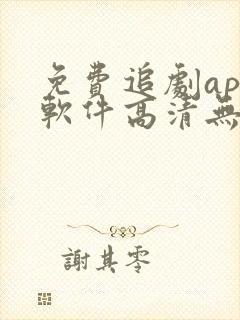 免費追劇ap
軟件高清無
謝其零